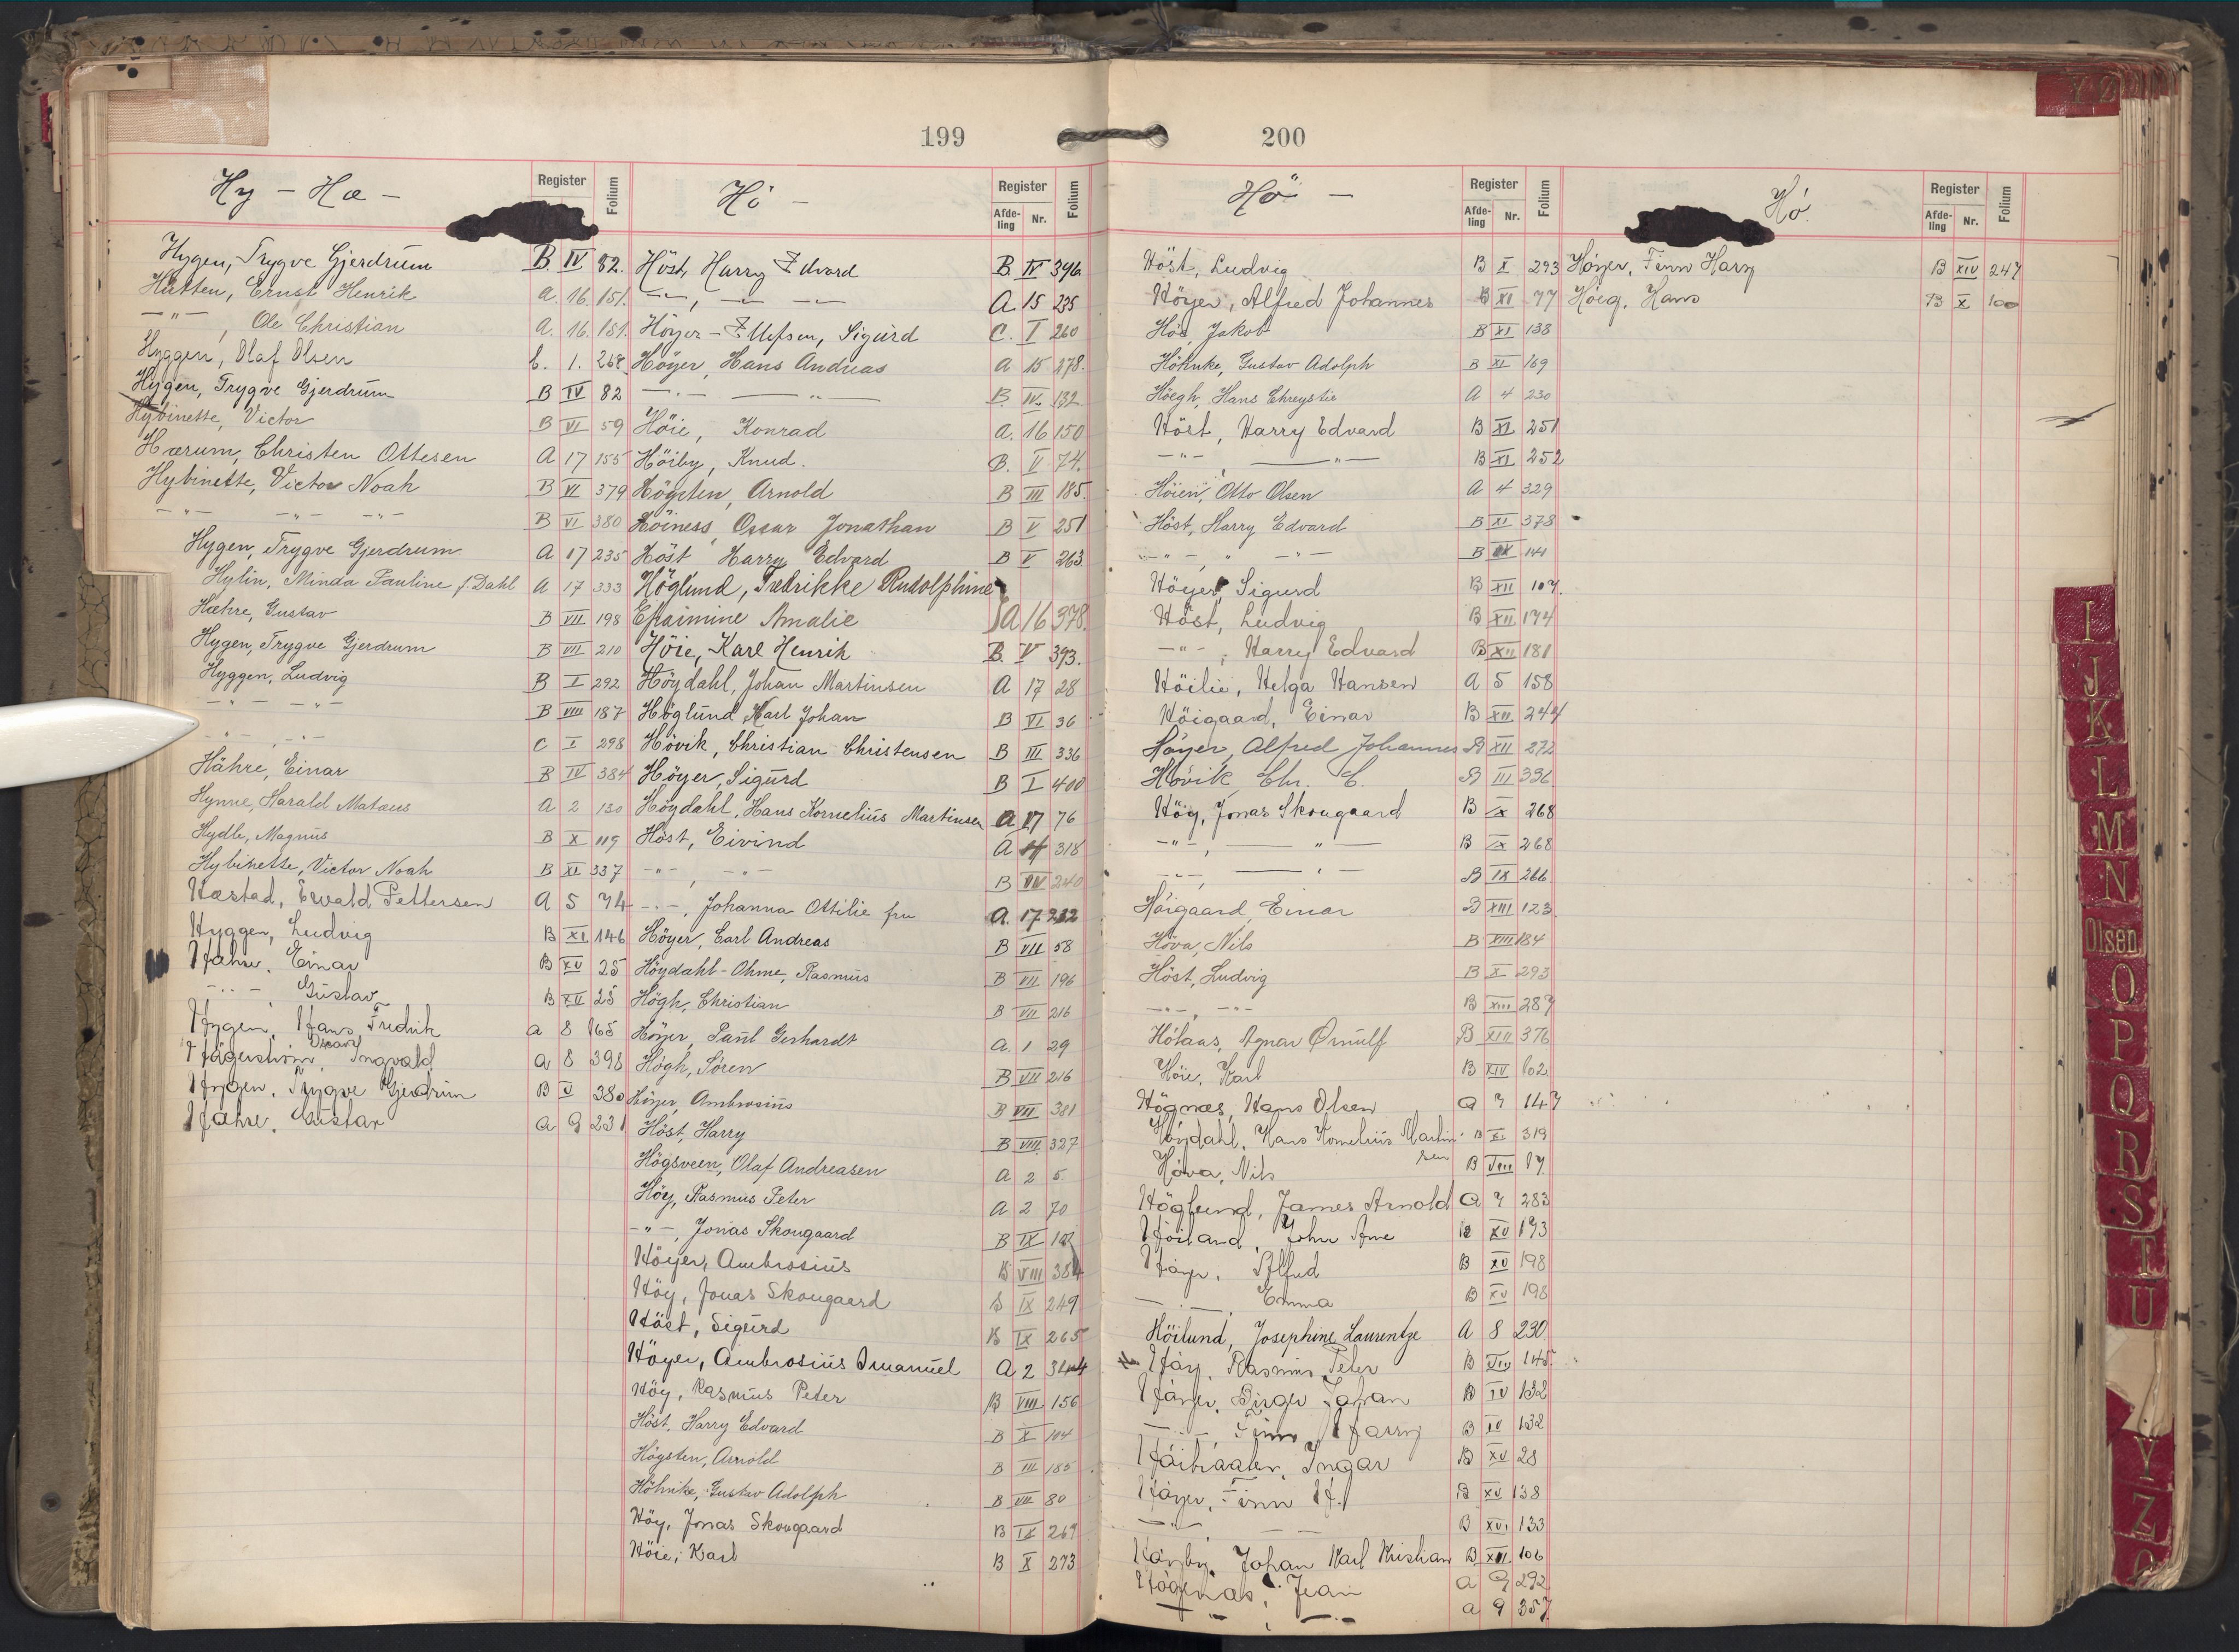 199
Hy - Hæ -
Register
Folium
Hygen, Trygve Gjerdrum B IV 82.
Hütten, Ernst Henrik A. 16. 151.
-"- , Ole Christian A. 16. 151.
Hyggen, Olaf Olsen C. 1. 268
Hygen, Trygve Gjerdrum B IV 82
Hybinette, Victor B VI 59
Hærum, Christen Ottesen A 17 155
Hybinette, Victor Noah B VI 379
-"- -"- -"- B VI 380
Hygen, Trygve Gjerdrum A 17 235
Hylin, Minda Pauline f. Dahl A 17 333
Hæhre, Gustav B VII 198
Hygen, Trygve Gjerdrum B VII 210
Hyggen, Ludvig B I 292
-"- -"- B VIII 187
-"- -"- C I 298
Hähre, Einar B IV 384
Hynne, Harald Matæus A 2 130
Hydle, Magnus B X 119
Hybinette, Victor Noah B XI 337
Hæstad, Ewald Pettersen A 5 74
Hyggen, Ludvig B XI 146
Hæhre, Einar B XV 25
-"- , Gustav B XV 25
Hygen, Hans Fredrik A 8 165
Hägerstrøm, Oscar Ingvald A 8 398
Hygen, Trygve Gjerdrum B V 380
Hæhre, Gustav A 9 231
Hö -
Register
Afde-ling
Nr.
Folium
Höst, Harry Edvard B IV 396
-"-, -"- -"- A 15 235
Höyer-Ellefsen, Sigurd C. I 260
Höyer, Hans Andreas A 15 278.
-"- -"- B. IV. 132
Höie, Konrad A. 16 150
Höiby, Knud. B. V 74.
Högsten, Arnold B III 185.
Höiness, Oscar Jonathan B V 251
Höst Harry Edvard B V 263
Höglund, Fredrikke Rudolphine
Efraimine Amalie A 16 378.
Höie, Karl Henrik B. V 393.
Höydahl, Johan Martinsen A 17 28
Höglund Karl Johan B VI 36
Hövik, Christian Christensen B III 336
Höyer, Sigurd B I 400
Höydahl, Hans Kornelius Martinsen A 17 76
Höst, Eivind A 14 318
-"- , -"- B IV 240
-"-, Johanna Ottilie fru A. 17 232
Höyer, Carl Andreas B VII 58
Höydahl-Ohme, Rasmus B VII 196
Högh, Christian B VII 216
Höyer, Paul Gerhardt A. 1 29
Högh, Sören B VII 216
Höyer, Ambrosius B VIII 381
Höst, Harry B VIII 327
Högsveen, Olaf Andreasen A 2 5.
Höy, Rasmus Peter A 2 70
-"-, Jonas Skougaard B IX
Höyer, Ambrosius B VIII 384
Höy, Jonas Skougaard B IX 249
Höst, Sigurd B IX 265
Höyer, Ambrosius Imanuel A 2 344
Höy, Rasmus Peter B VIII 156
Höst, Harry Edvard B X 104
Högsten, Arnold B III 185
Höhnke, Gustav Adolph B VII 80
Höy, Jonas Skougaard B IX 267
Höie, Karl B X 273
200
Hö -
Register
Afde-ling
Nr.
Folium
Höst, Ludvig B X 293
Höyer, Alfred Johannes B XI 77
Höe, Jakob B XI 138
Höhnke, Gustav Adolph B XI 169
Höegh, Hans Chrystie A 4 230
Höst, Harry Edvard B XI 251
-"- -"- B XI 252
Höien, Otto Olsen A 4 329
Höst, Harry Edvard B XI 378
-"- , " -"- B IX 141
Höyer, Sigurd B XII 107.
Höst, Ludvig B XII 174
-"- , Harry Edvard B XII 181
Höilie, Helga Hansen A 5 158
Höigaard, Einar B XII 244
Höyer, Alfred Johannes B XII 272
Hövik, Chr. C. B III 336
Höy, Jonas Skougaard B IX 268
-"-, -"- B IX 268
-"-, -"- B IX 266
Höigaard, Einar B XIII 123
Höva, Nils B XIII 184
Höst, Ludvig B X 293
-"-, -"- B XIII 287
Hölaas, Agnar Ørnulf B XIII 376
Höie, Karl B XIV 102
Högnæs, Hans Olsen A 7 147
Höydahl, Hans Kornelius Martinsen B XI 319
Höva, Nils B VIII 87
Höglund, James Arnold A 7 283
Höiland, John Arne B XV 193
Höyer, Alfred B XV 198
-"-, Emma B XV 198
Höilund, Josephine Laurentze A 8 230
Höy, Rasmus Peter B VIII 145
Höyer, Birger Johan B IV 132
-"-, Finn Harry B IV 132
Höibraaten, Ingar B XV 28
Höyer, Finn H. B XV 138
-"- -"- B XVI 133
Höyby, Johan Karl Kristian B XII 106
Högenas, Jean A 9 292
-"- , -"- A 9 357
Hö.
Register
Afde-ling
Nr.
Folium
Höyer, Finn Harry B XIV 247
Höeg, Hans B X 100
I
J
K
L
M
N
Olsen
O
P
Q
R
S
T
U
Y
Z